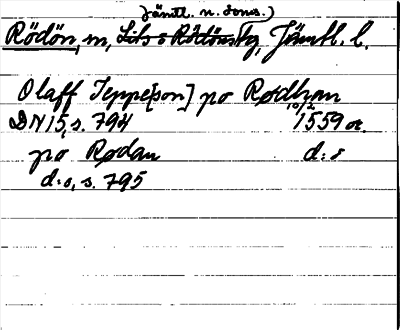 Jämtl. n. doms.)
Rödön, m, Lits o Rödöns Tg, Jämtl. l.
Olaff Jeppe[son] po Rødhan
10/2
DN 15, s. 794 1559 or.
po Rødan d:o
d:o, s. 795